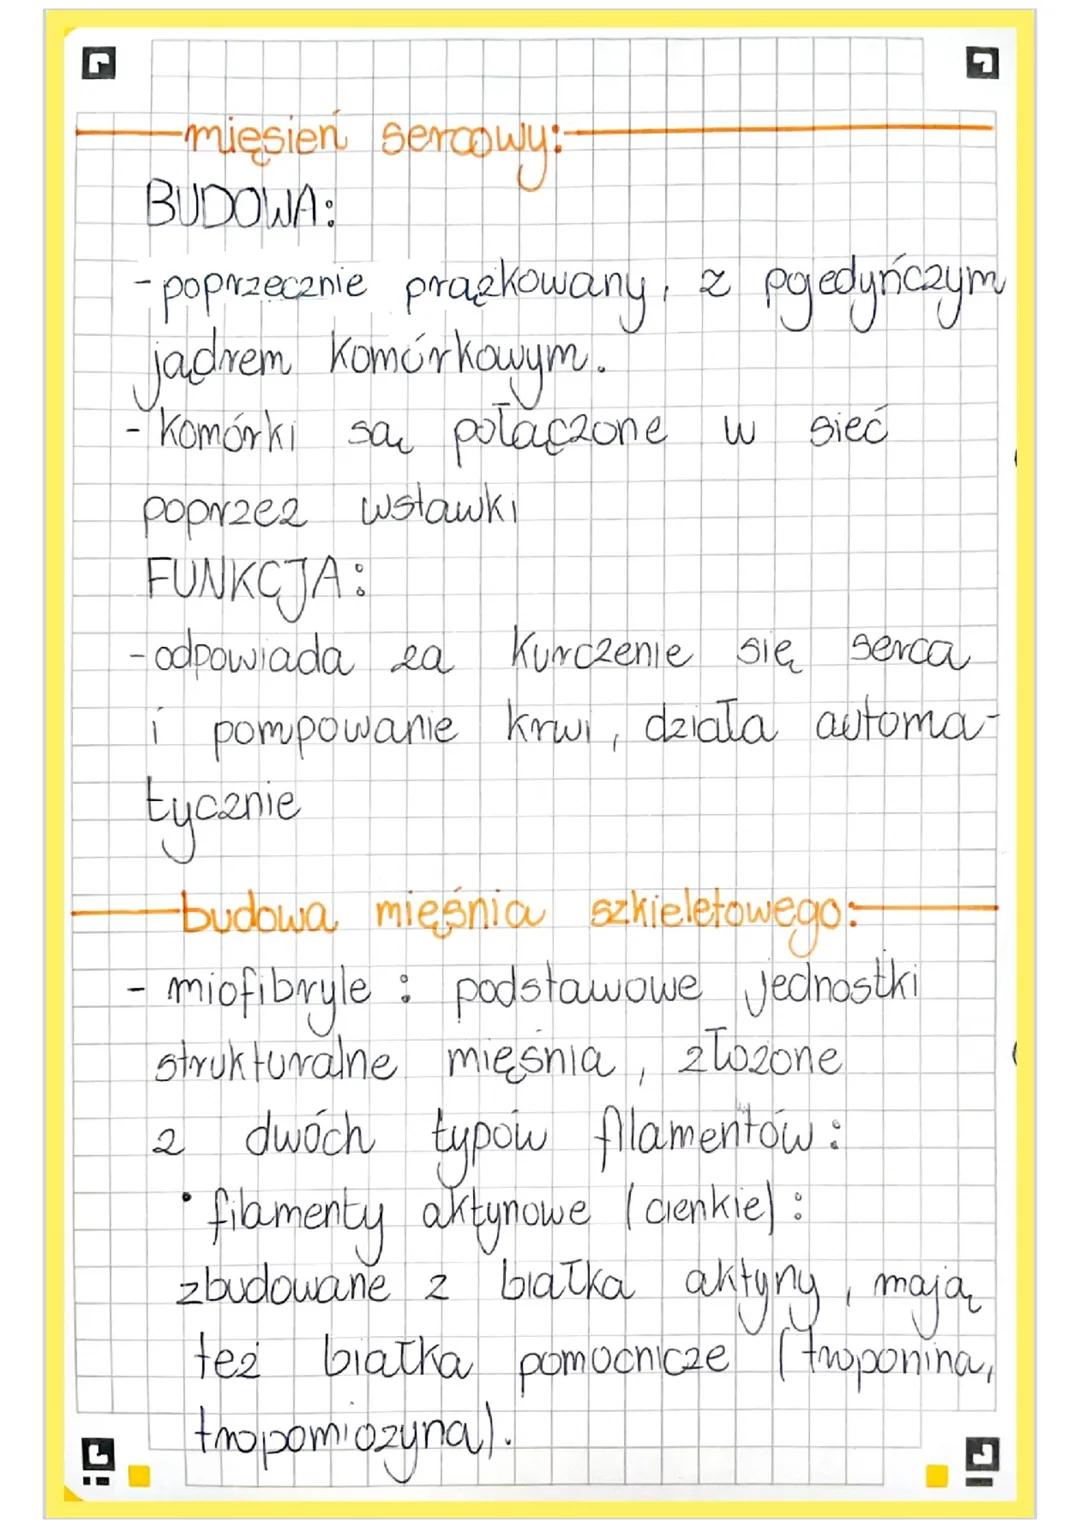 mięsień sercowy:
BUDOWA:
- poprzecznie prążkowany, z pojedyńczym
jądrem komórkowym.
- komórki są połączone w sieć
poprzez wstawki
FUNKCJA:
- odpowiada za kurczenie się serca
i pompowanie krwi, działa automa-
tycznie
budowa mięśnia szkieletowego:
- miofibryle : podstawowe jednostki
strukturalne mięśnia, złożone
z dwóch typów filamentów:
• filamenty aktynowe (cienkie):
zbudowane z białka aktyny, mają
też białka pomocnicze (troponina,
tropomiozyna).